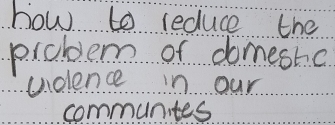 how to reduce the
problem of domestic
violence in our
communites